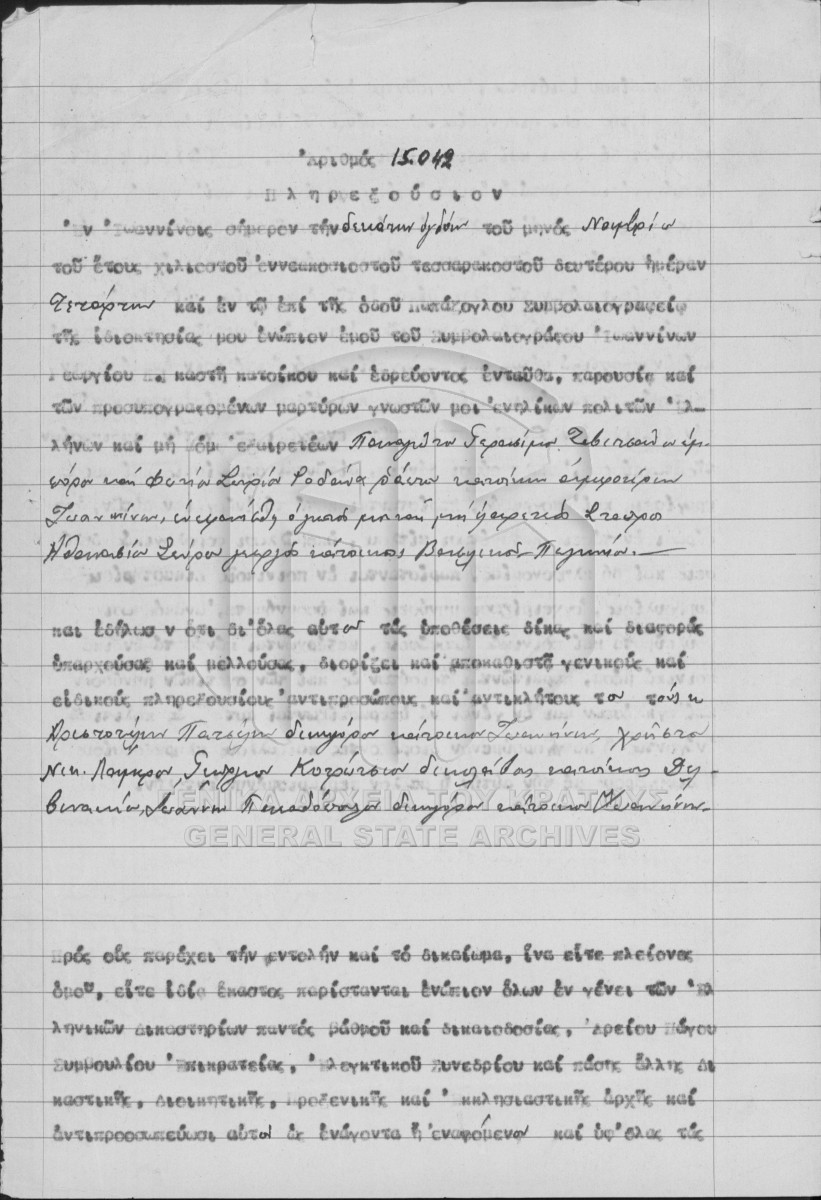 Ἀριθμός 15.042
Πληρεξούσιον
Ἐν Ἰωαννίνοις σήμερον τήν δεκάτην ὀγδόην τοῦ μηνός Νοεμβρίου
τοῦ ἔτους χιλιοστοῦ ἐννεακοσιοστοῦ τεσσαρακοστοῦ δευτέρου ἡμέραν
Τετάρτην καί ἐν τῷ ἐπί τῆς ὁδοῦ Παπάζογλου Συμβολαιογραφείῳ
τῆς ἰδιοκτησίας μου ἐνώπιον ἐμοῦ τοῦ Συμβολαιογράφου Ἰωαννίνων
Γεωργίου καστῆ κατοίκου καί ἑδρεύοντος ἐνταῦθα, παρουσίᾳ καί
τῶν προσυπογραφομένων μαρτύρων γνωστῶν μοι ἐνηλίκων πολιτῶν Ἑλ-
λήνων καί μή ἐξαιρετέων Παναγιώτου Γερασίμου ἐμ-
πόρου καί κατοίκων ἀμφοτέρων
Ἰωαννίνων, ἐνεφανίσθη ὁ γνωστός μοι καί μή ἐξαιρετέος Σταῦρος
Ἀθανασίου γεωργός κάτοικος
και ἐδήλωσ ν ὅτι δι' ὅλας αὐτοῦ τάς ὑποθέσεις δίκας καί διαφοράς
ὑπαρχούσας καί μελλούσας, διορίζει καί ἀποκαθιστᾷ γενικούς καί
εἰδικούς πληρεξουσίους ἀντιπροσώπους καί ἀντικλήτους του τούς κ
Ἀριστοτέλην δικηγόρον κάτοικον Ἰωαννίνων, Χρῆστον
Νικ. Λάμπρον, Γεώργιον κατοίκους Δελ-
βινακίου, Ἰωάννην Παπαδόπουλον δικηγόρον κάτοικον Ἰωαννίνων.
ΓΕΝΙΚΑ ΑΡΧΕΙΑ ΤΟΥ ΚΡΑΤΟΥΣ
GENERAL STATE ARCHIVES
Πρός οὕς παρέχει τήν ἐντολήν καί τό δικαίωμα, ἵνα εἴτε πλείονες
ὁμοῦ, εἴτε ἰδίᾳ ἕκαστος παρίστανται ἐνώπιον ὅλων ἐν γένει τῶν Ἑλ
ληνικῶν Δικαστηρίων παντός βαθμοῦ καί δικαιοδοσίας, Ἀρείου Πάγου
Συμβουλίου Ἐπικρατείας, Ἐλεγκτικοῦ Συνεδρίου καί πάσης ἄλλης Δι
καστικῆς, Διοικητικῆς, Προξενικῆς καί Ἐκκλησιαστικῆς ἀρχῆς καί
ἀντιπροσωπεύωσι αὐτόν ὡς ἐνάγοντα ἤ ἐναγόμενον καί ὑφ' ὅλας τάς